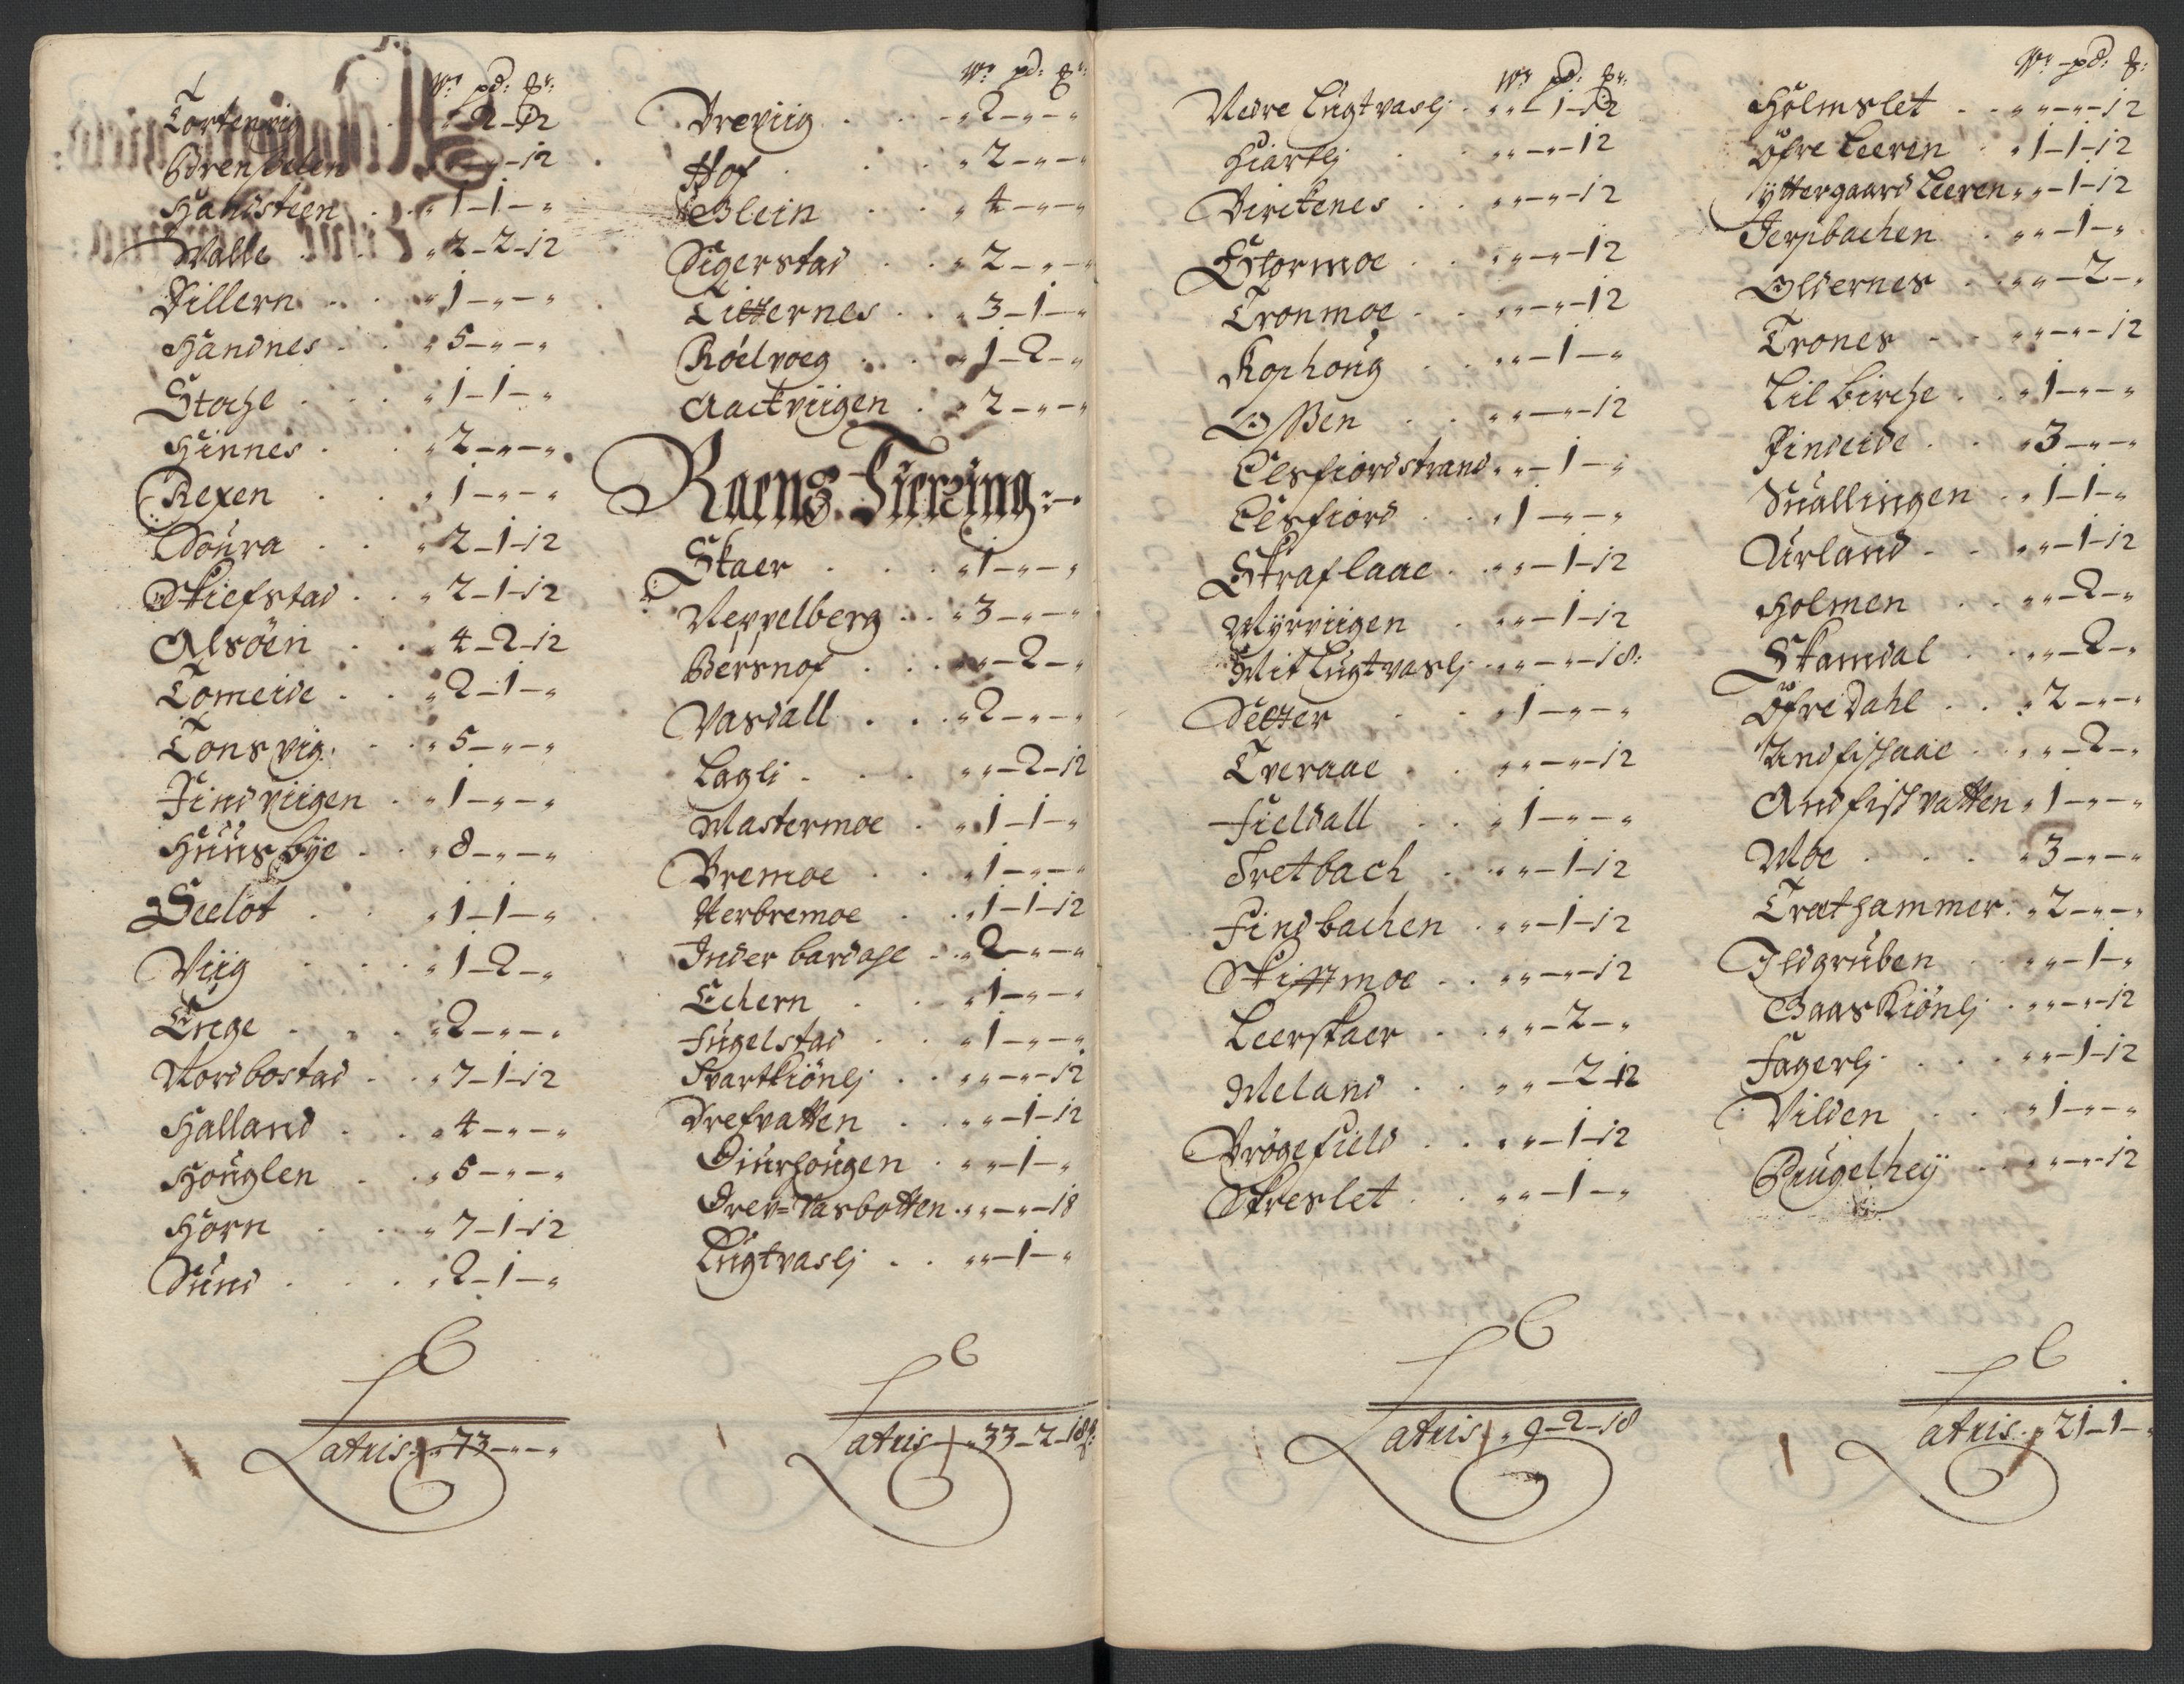 W: pd: ℔:
Tortenvig . „ 2 – 12
Brendelen „ – „ – 12
Handsteen . . „ 1 – 1 – „
Walle . . „ 2 – 2 – 12
Dillern . . „ 1 – „ – „
Handnes . . „ 5 – „ – „
Stoche . . . „ 1 – 1 – „
Hinnes . . „ 2 – „ – „
Rexen . . „ 1 – „ – „
Soura . . „ 2 – 1 – 12
Skiefstad . . „ 2 – 1 – 12
Alsöen . . 4 – 2 – 12
Tomeide . . „ 2 – 1 – „
Tonsvig . . „ 5 – „ – „
Findviigen . „ 1 – „ – „
Huusbye . . „ 8 – „ – „
Seelot . . „ 1 – 1 – „
Viig . . . „ 1 – 2 – „
Enge . . . „ 2 – „ – „
Nordbostad . . „ 7 – 1 – 12
Halland . . „ 4 – „ – „
Houglen . „ 5 – „ – „
Horn . . „ 7 – 1 – 12
Sund . . . „ 2 – 1 – „
Latris . „ 73 – „ – „
W: pd: ℔:
Breviig . . . „ 2 – „ – „
Hof . . . „ 2 – „ – „
Blein . . „ 4 – „ – „
Sigerstad . . „ 2 – „ – „
Titternes . . „ 3 – 1 – „
Röelvoeg . . . „ 1 – 2 – „
Aackviigen . „ 2 – „ – „
Raens Fierding
Skaer . . . „ 1 – „ – „
Neppelberg . . „ 3 – „ – „
Bersnof . . . „ „ – 2 – „
Vasdall . . . „ 2 – „ – „
Lagli . . . „ „ – 2 – 12
Mastermoe . „ 1 – 1 – „
Bremoe . . „ 1 – „ – „
Nerbremoe . . „ 1 – 1 – 12
Inder bardahl . „ 2 – „ – „
Echern . . „ 1 – „ – „
Fugelstad . . „ 1 – „ – „
Svartkiönlj . . „ „ – „ – 12
Drefvatten . . „ „ – 1 – 12
Diurhougen . „ „ – 1 – „
Drev=Vasbotten . „ „ – „ – 18
Lugtvaslj . . „ „ – 1 – „
Latris „ 33 – 2 – 18
W: pd: ℔:
Nedre Lugtvaslj . „ „ – 1 – 12
Hiartlj . . „ „ – „ – 12
Birckenes . . „ „ – „ – 12
Stormoe . . „ „ – „ – 12
Tronmoe . . „ „ – „ – 12
Kophoug . . „ „ – 1 – „
Ossen . . „ „ – „ – 12
Elsfiordstrand „ „ – 1 – „
Elsfiord . . „ 1 – „ – „
Straflaae . . „ „ – 1 – 12
Myrviigen . „ „ – 1 – 12
Mit Lugtvaslj . „ „ – „ – 18
Setter . . „ 1 – „ – „
Tveraae . . „ „ – „ – 12
Fieldall . . „ 1 – „ – „
Fretbach . . „ „ – 1 – 12
Findbachen . „ „ – 1 – 12
Skittmoe . . „ „ – „ – 12
Leerskaer . . „ „ – 2 – „
Meland . . „ „ – 2 – 12
Brögefield . . „ „ – 1 – 12
Skreslet . . „ „ – 1 – „
Latris „ 9 – 2 – 18
W: pd: ℔:
Holmslet . . „ „ – „ – 12
Öfre Leeren . „ 1 – 1 – 12
Yttergaard Leeren „ „ – 1 – 12
Jerpbachen . „ „ – 1 – „
Oldernes . . „ „ – 2 – „
Trones . . „ „ – „ – 12
Lil Birche . . „ 1 – „ – „
Findeide . . „ 3 – „ – „
Snallingen . „ 1 – 1 – „
Urland . . „ „ – 1 – 12
Holmen . . „ „ – 2 – „
Skamdal . . „ „ – 2 – „
Öfre Dahl . . „ 2 – „ – „
Andfiskaae . „ „ – 2 – „
Andfiskvatten „ 1 – „ – „
Moe . . . „ 3 – „ – „
Trathammer . „ 2 – „ – „
Ildgruben . . „ „ – 1 – „
Gaaskiönlj . . „ „ – „ – 12
Fagerlj . . . „ „ – 1 – 12
Vilden . . . „ 1 – „ – „
Prugelhey . . „ „ – „ – 12
Latris . „ 21 – 1 – „